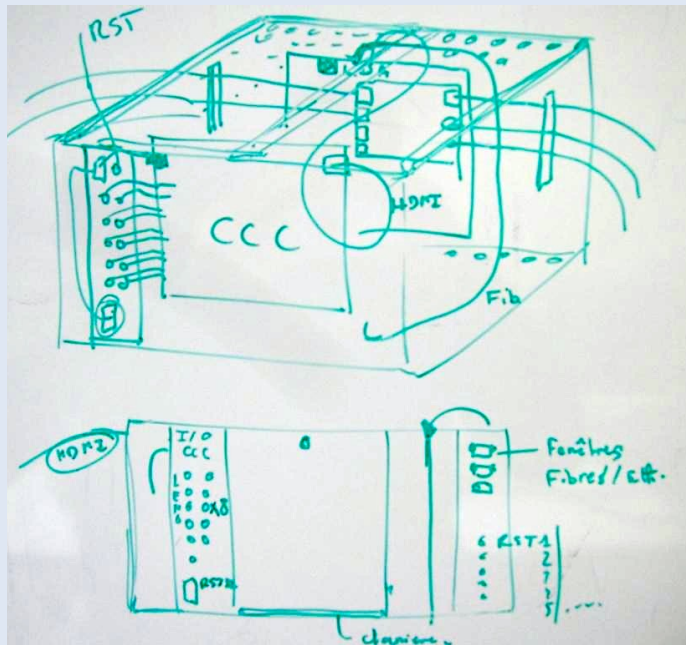 RST
CCC
HDMI
Fib
HDMI
I/O
CCC
L
E
M
O
x8
Fenêtres
Fibres / Eth.
RST 1
2
5 ....
charnière.